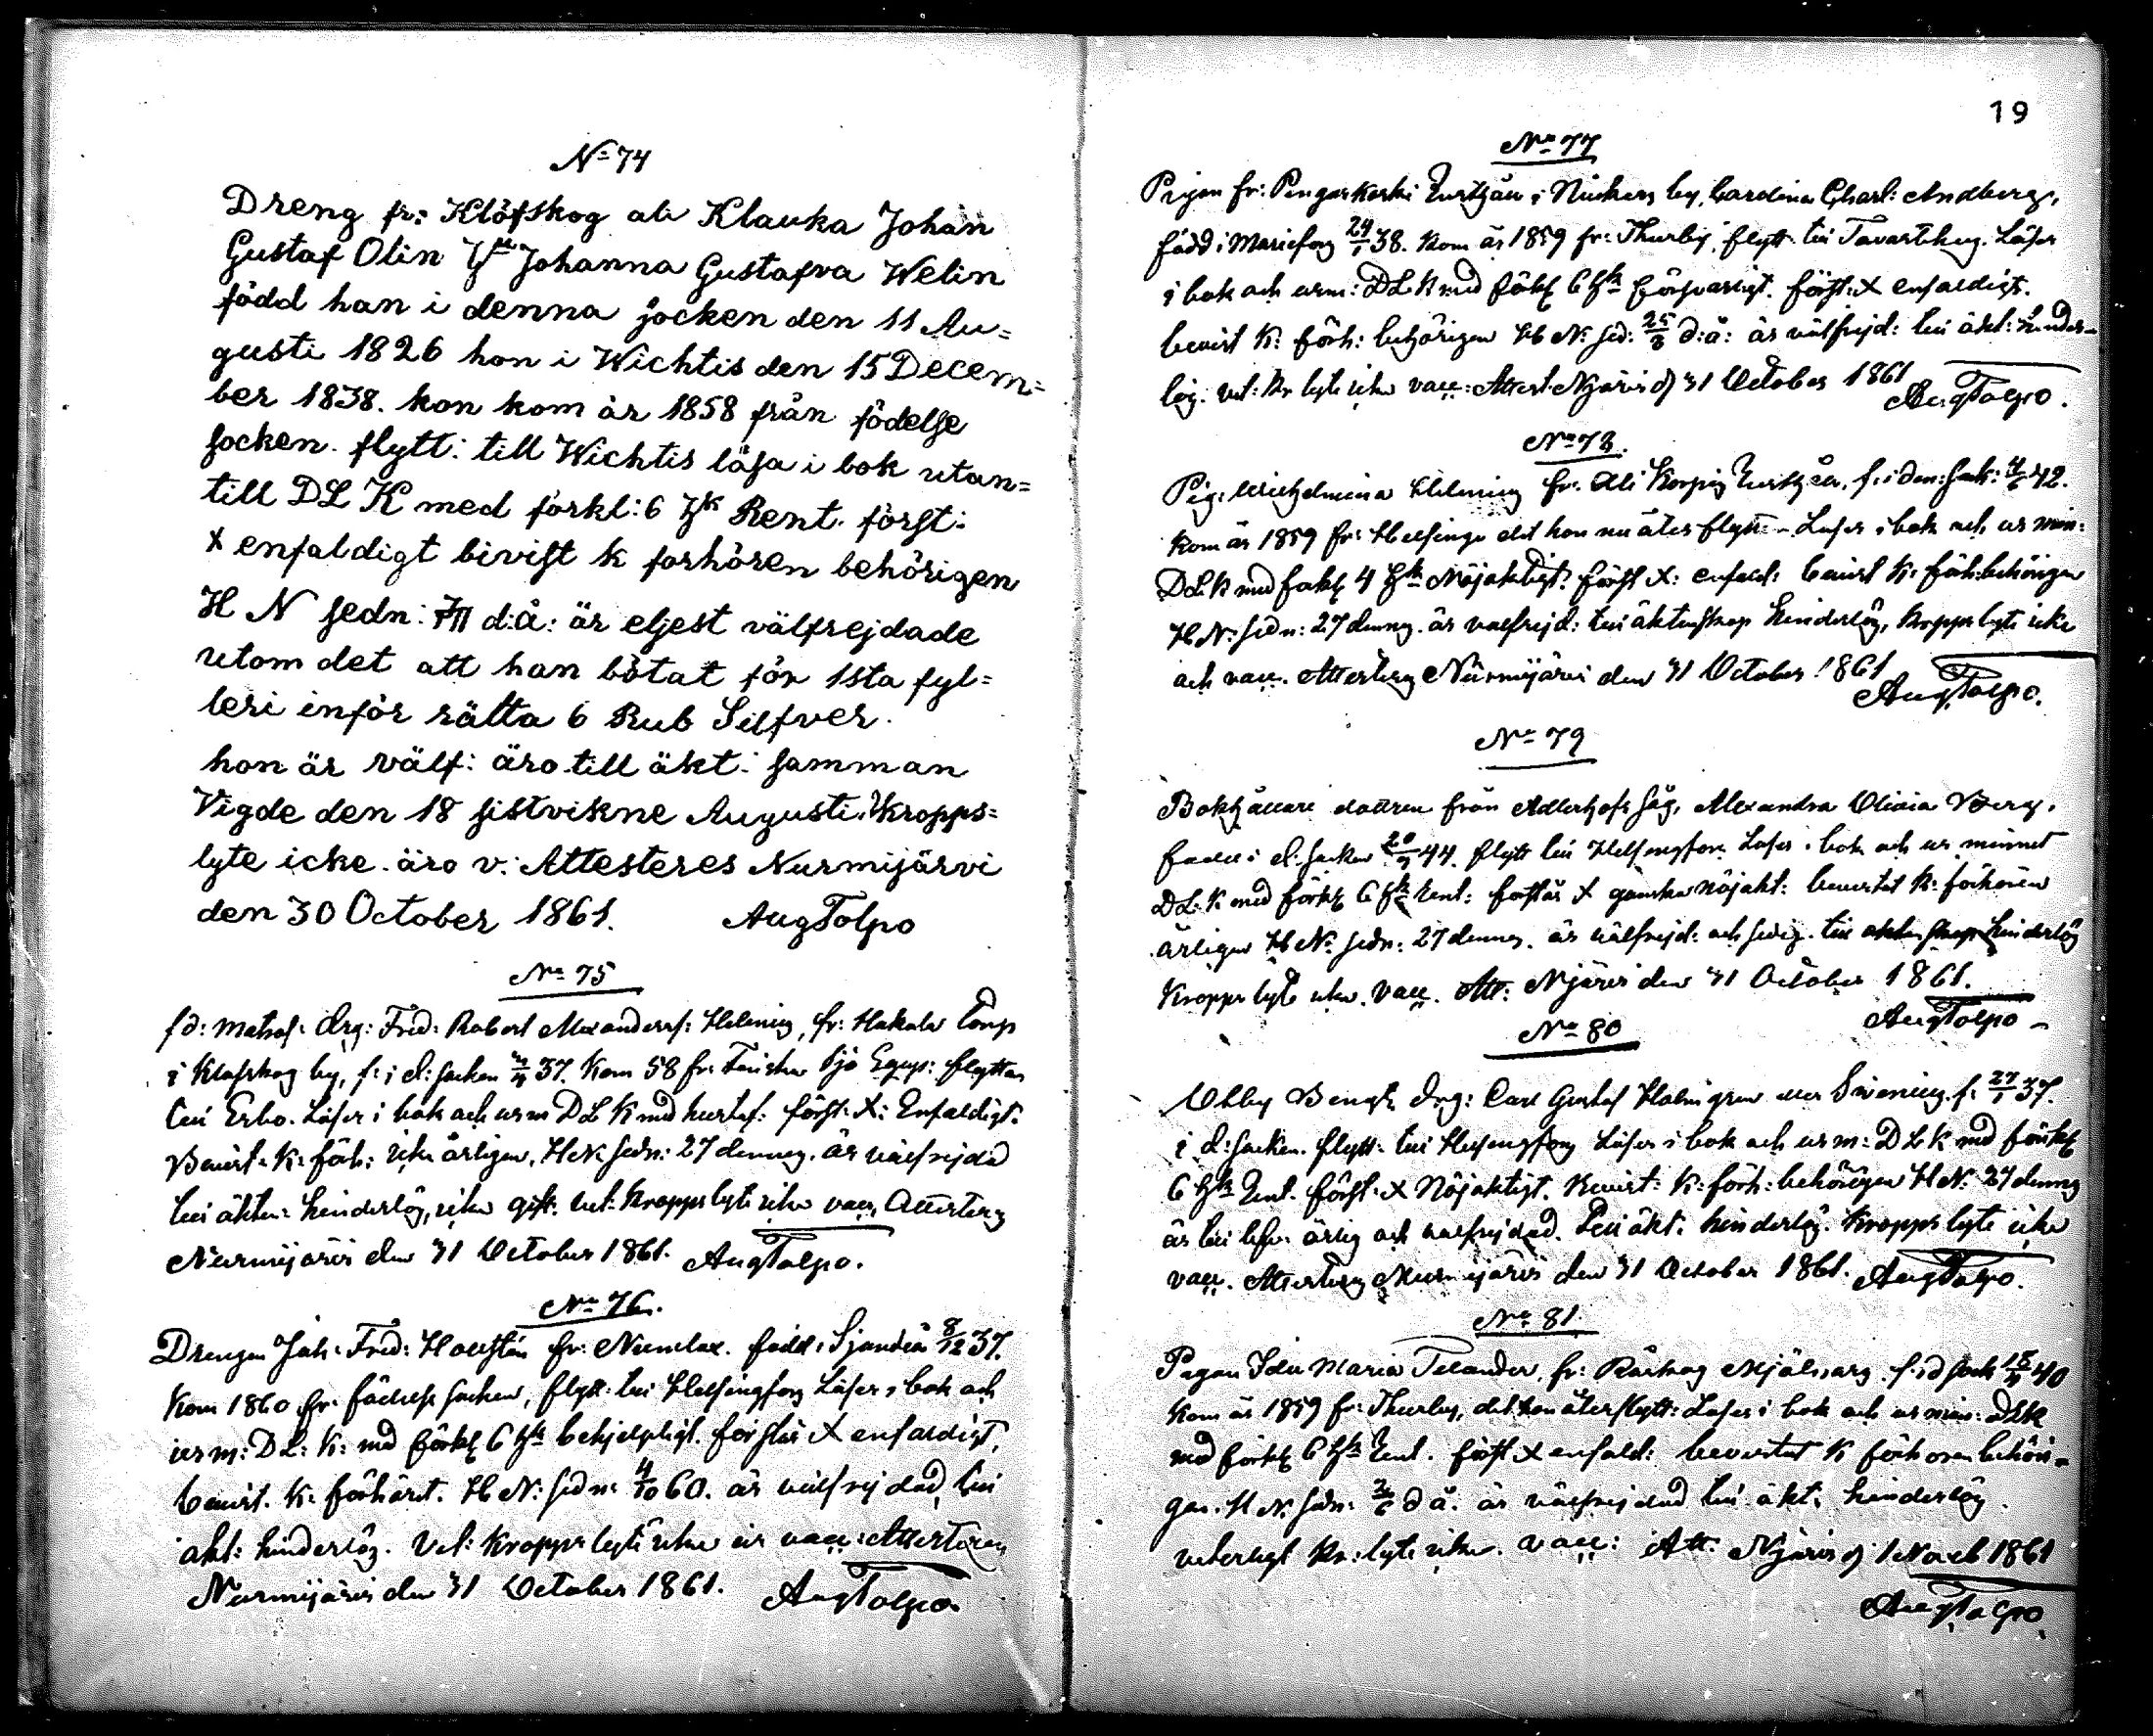 N: 74
Dreng fr: Klöfskog ali Klauka Johan
Gustaf Olin Hu Johanna Gustafva Welin
född han i denna socken den 11 Au=
gusti 1826 hon i Wichtis den 15 Decem=
ber 1838. hon kom år 1858 från födelse
socken. flytt: till Wichtis läsa i bok utan=
till DL K med förkl: 6 Hk Rent. först:
x enfaldigt bivist k forhören behörigen
H N sedn: d:å: är eljest välfrejdade
utom det att han bötat för 1sta fyl=
leri inför rätta 6 Rub Silfver.
hon är välf: äro till äkt: samman
Vigde den 18 sistvikne Augusti. Kropps=
lyte icke. äro v: Attesteres Nurmijärvi
den 30 October 1861. Aug Tolpo
No 75
fd: Drg: Fred: Robert Alexanderss: Helenius, fr: Hakala Torp
i Klöfskog by, f: i d: socken 37. Kom 58 fr: flyttar
till Esbo. Läser i bok och ur m DL K med hustaf: först: X: Enfaldigt.
Bevist: K: föh: icke årligen, H N sedn: 27 dennes. är välfrejdad
till äkten: hinderlös, icke gift. vet: Kroppslyte icke vacc. Attesteras
Nurmijärvi den 31 October 1861. Aug Tolpo.
No 76.
Drengen Joh: Fred: fr: Numlax. född i Sjundeå 8/12 37.
Kom 1860 fr: födelse socken, flytt: till Helsingfors Läser i bok och
ur m: DL: K: med förkl 6 Hk behjelpligt. förstår X enfaldigt,
bevist. K: förhöret. H N: sedn: 4/10 60. är välfrejdad, till
äkt: hinderlös. Vet: Kroppslyte icke är vacc: Attesteras
Nurmijärvi den 31 October 1861. Aug Tolpo.
19
No 77
Pigan fr: i by, Carolina Charl: Andberg,
född i 24/1 38. Kom år 1859 fr: Thusby, flytt. till Tavastehus. Läser
i bok och ur m: DL K med förkl 6 Hk försvarligt. först: X enfaldigt.
bevist K: förh: behörigen H N: sed: 25/8 d:å: är välfrejd: till äkt: hinder-
lös. vet: kr lyte icke vacc: Attest. Njärvi d 31 October 1861
Aug Tolpo.
No 78.
Pig: Wilhelmina Helenius fr. Ali f. i den: sock: 42.
Kom år 1859 fr: Helsinge dit hon nu åter flytt: Läser i bok och ur min:
DL K med förkl 4 Hk Nöjaktigt. först X: enfald: bevist K: föh: behörigen
H N: sedn: 27 dennes. är välfrejd: till äktenskap hinderlös, kroppslyte icke
och vacc. Attesteras Nurmijärvi den 31 October 1861
Aug Tolpo.
No 79
Bokhållare dottren från såg, Alexandra Olivia Berg.
född i d: socken 44. flytt till Helsingfors Läser i bok och ur minnet
DL K med förkl 6 Hk Rent: förstår X ganska nöjakt: bevistat K: förhören
årligen H N: sedn: 27 dennes. är välfrejd: och ledig. till äktenskap hinderlös
Kroppslyte icke. Vacc. Att: Njärvi den 31 October 1861.
Aug Tolpo
No 80
Drg: Carl Gustaf Holmgren eller f: 27/1 37.
i d: socken. flytt: till Helsingfors Läser i bok och ur m: DL K med förkl
6 Hk Rent. först: X Nöjaktigt. bevist: K: förh: behörigen H N: 27 dennes
är till lefn: ärlig och välfrejdad. Till äkt: hinderlös. Kroppslyte icke
vacc. Attesteras Nurmijärvi den 31 October 1861. Aug Tolpo.
No 81.
Pigan Ida Maria Telander, fr: f. i d sock 40
Kom år 1859 fr: Thusby, dit hon återflytt: Läser i bok och ur min: DLK
med förkl 6 Hk Rent. först X enfald: bevistat K förhören behöri-
gen. H N: sedn: d å. är välfrejdad till äkt: hinderlös.
veterligt kr: lyte icke. vacc: Att: Njärvi d 1 Novemb 1861
Aug Tolpo